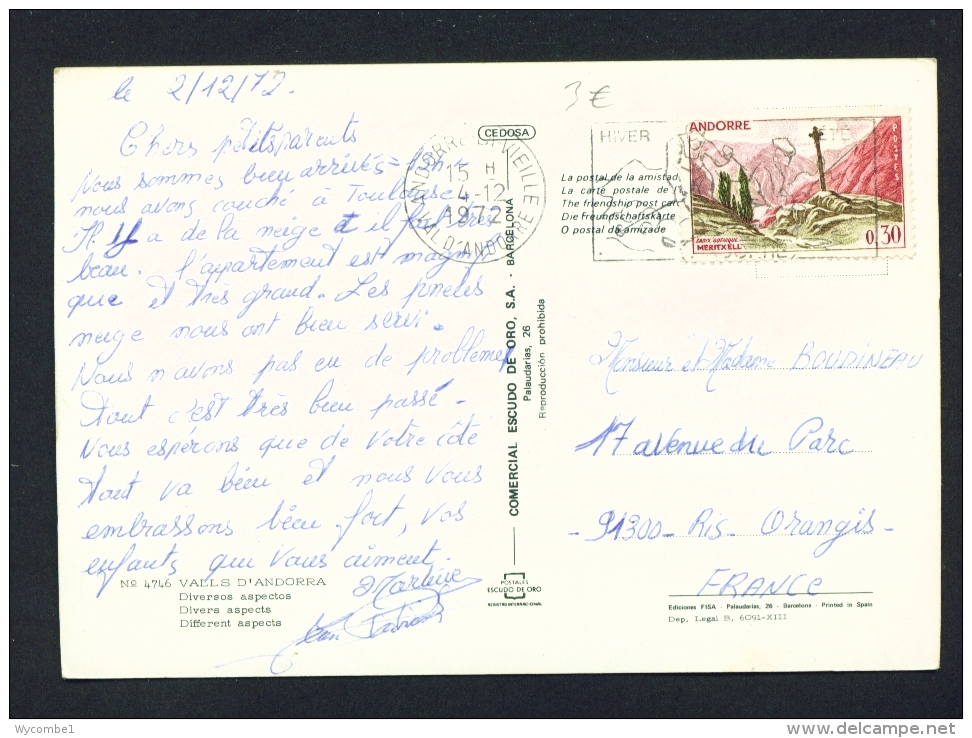 le 2/12/72.
Chers petits parents
Nous sommes bien arrivés
nous avons couché à Toulouse
Il y a de la neige et il fait très
beau. l'appartement est magnifi
que et très grand. Les pneus
neige nous ont bien servi.
Nous n'avons pas eu de problemes
tout c'est très bien passé.
Nous espérons que de votre côté
tout va bien et nous vous
embrassons bien fort, vos
enfants qui vous aiment.
Martine
Jean
Nº 4746 VALLS D'ANDORRA
Diversos aspectos
Divers aspects
Different aspects
CEDOSA
COMERCIAL ESCUDO DE ORO, S.A. - BARCELONA
Palaudarias, 26
Reproducción prohibida
POSTALES
ESCUDO DE ORO
REGISTRO INTERNACIONAL
ANDORRE LA VIEILLE
15 H
4-12
1972
VAL D'ANDORRE
3€
HIVER
ETE
La postal de la amistad
La carte postale de
The friendship post car
Die Freundschaftskarte
O postal da amizade
ANDORRE
POSTES
CROIX GOTHIQUE
MERITXELL
0,30
Monsieur et Madame BOUDINEAU
17 avenue du Parc
- 91300 - Ris - Orangis -
FRANCE
Ediciones FISA - Palaudarias, 26 - Barcelona - Printed in Spain
Dep. Legal B. 6091-XIII
Wycombe1
www.delcampe.net